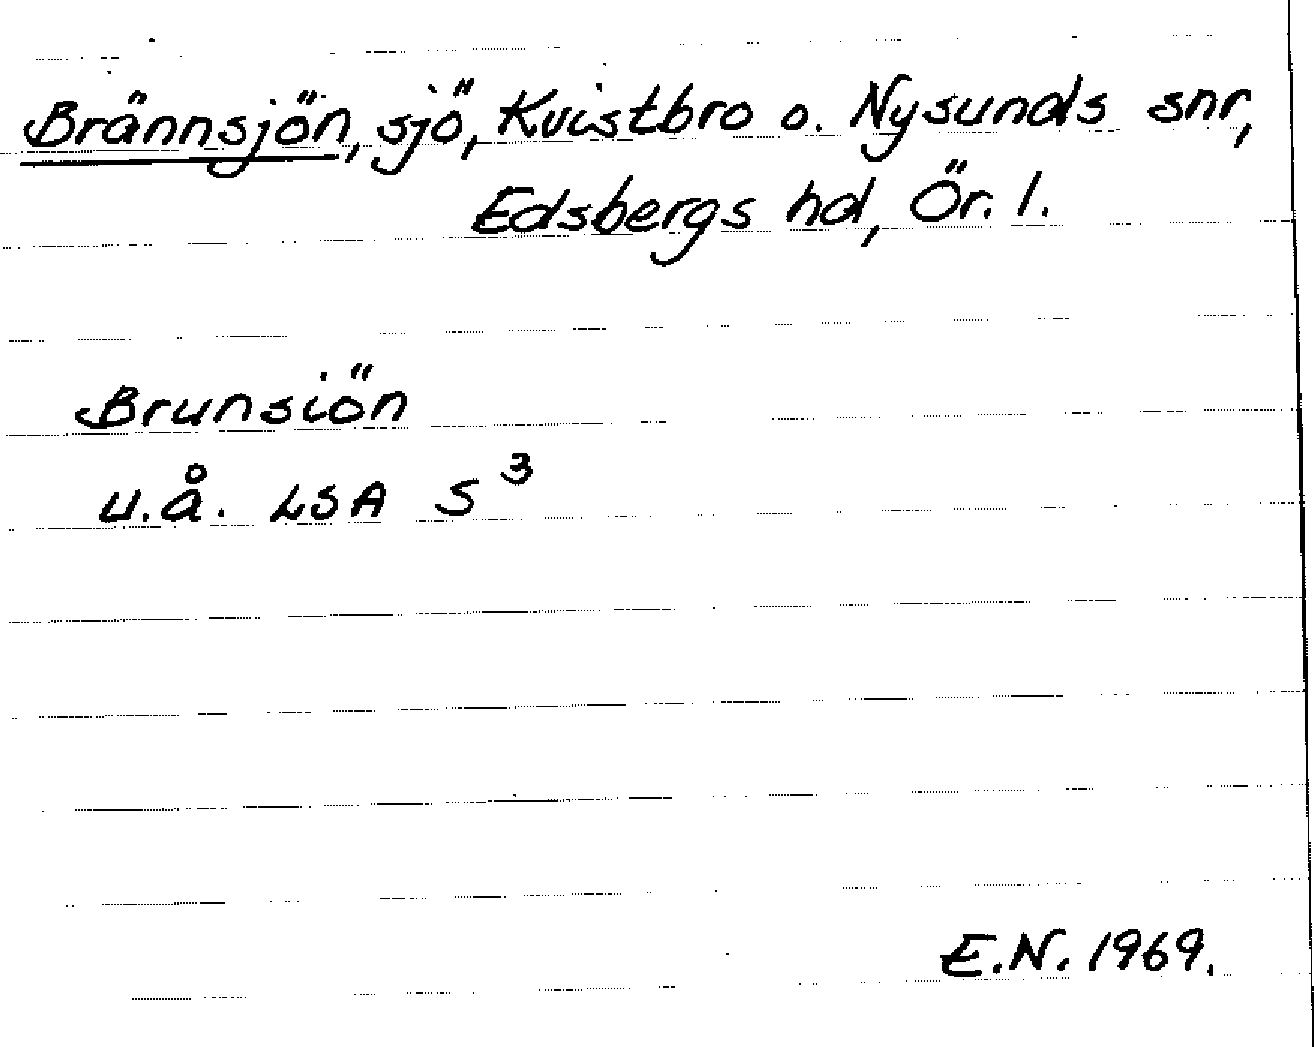 Brännsjön, sjö, Kvistbro o. Nysunds snr,
Edsbergs hd, Ör. l.
Brunsiön
u.å. LSA S³
E.N. 1969.